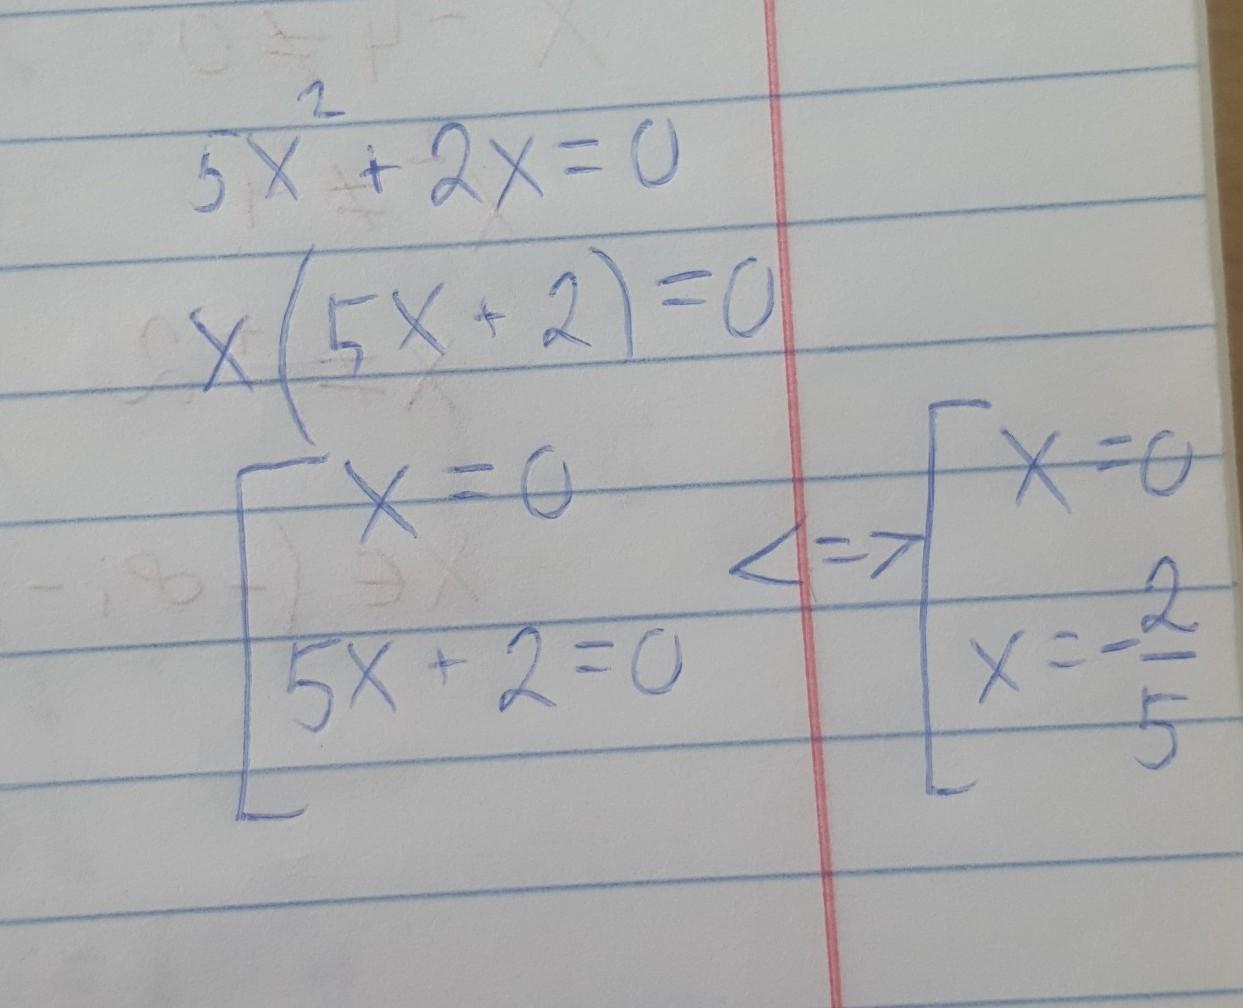 5x² + 2x = 0
x(5x + 2) = 0
[ x = 0
5x + 2 = 0
<=> [ x = 0
x = -2/5